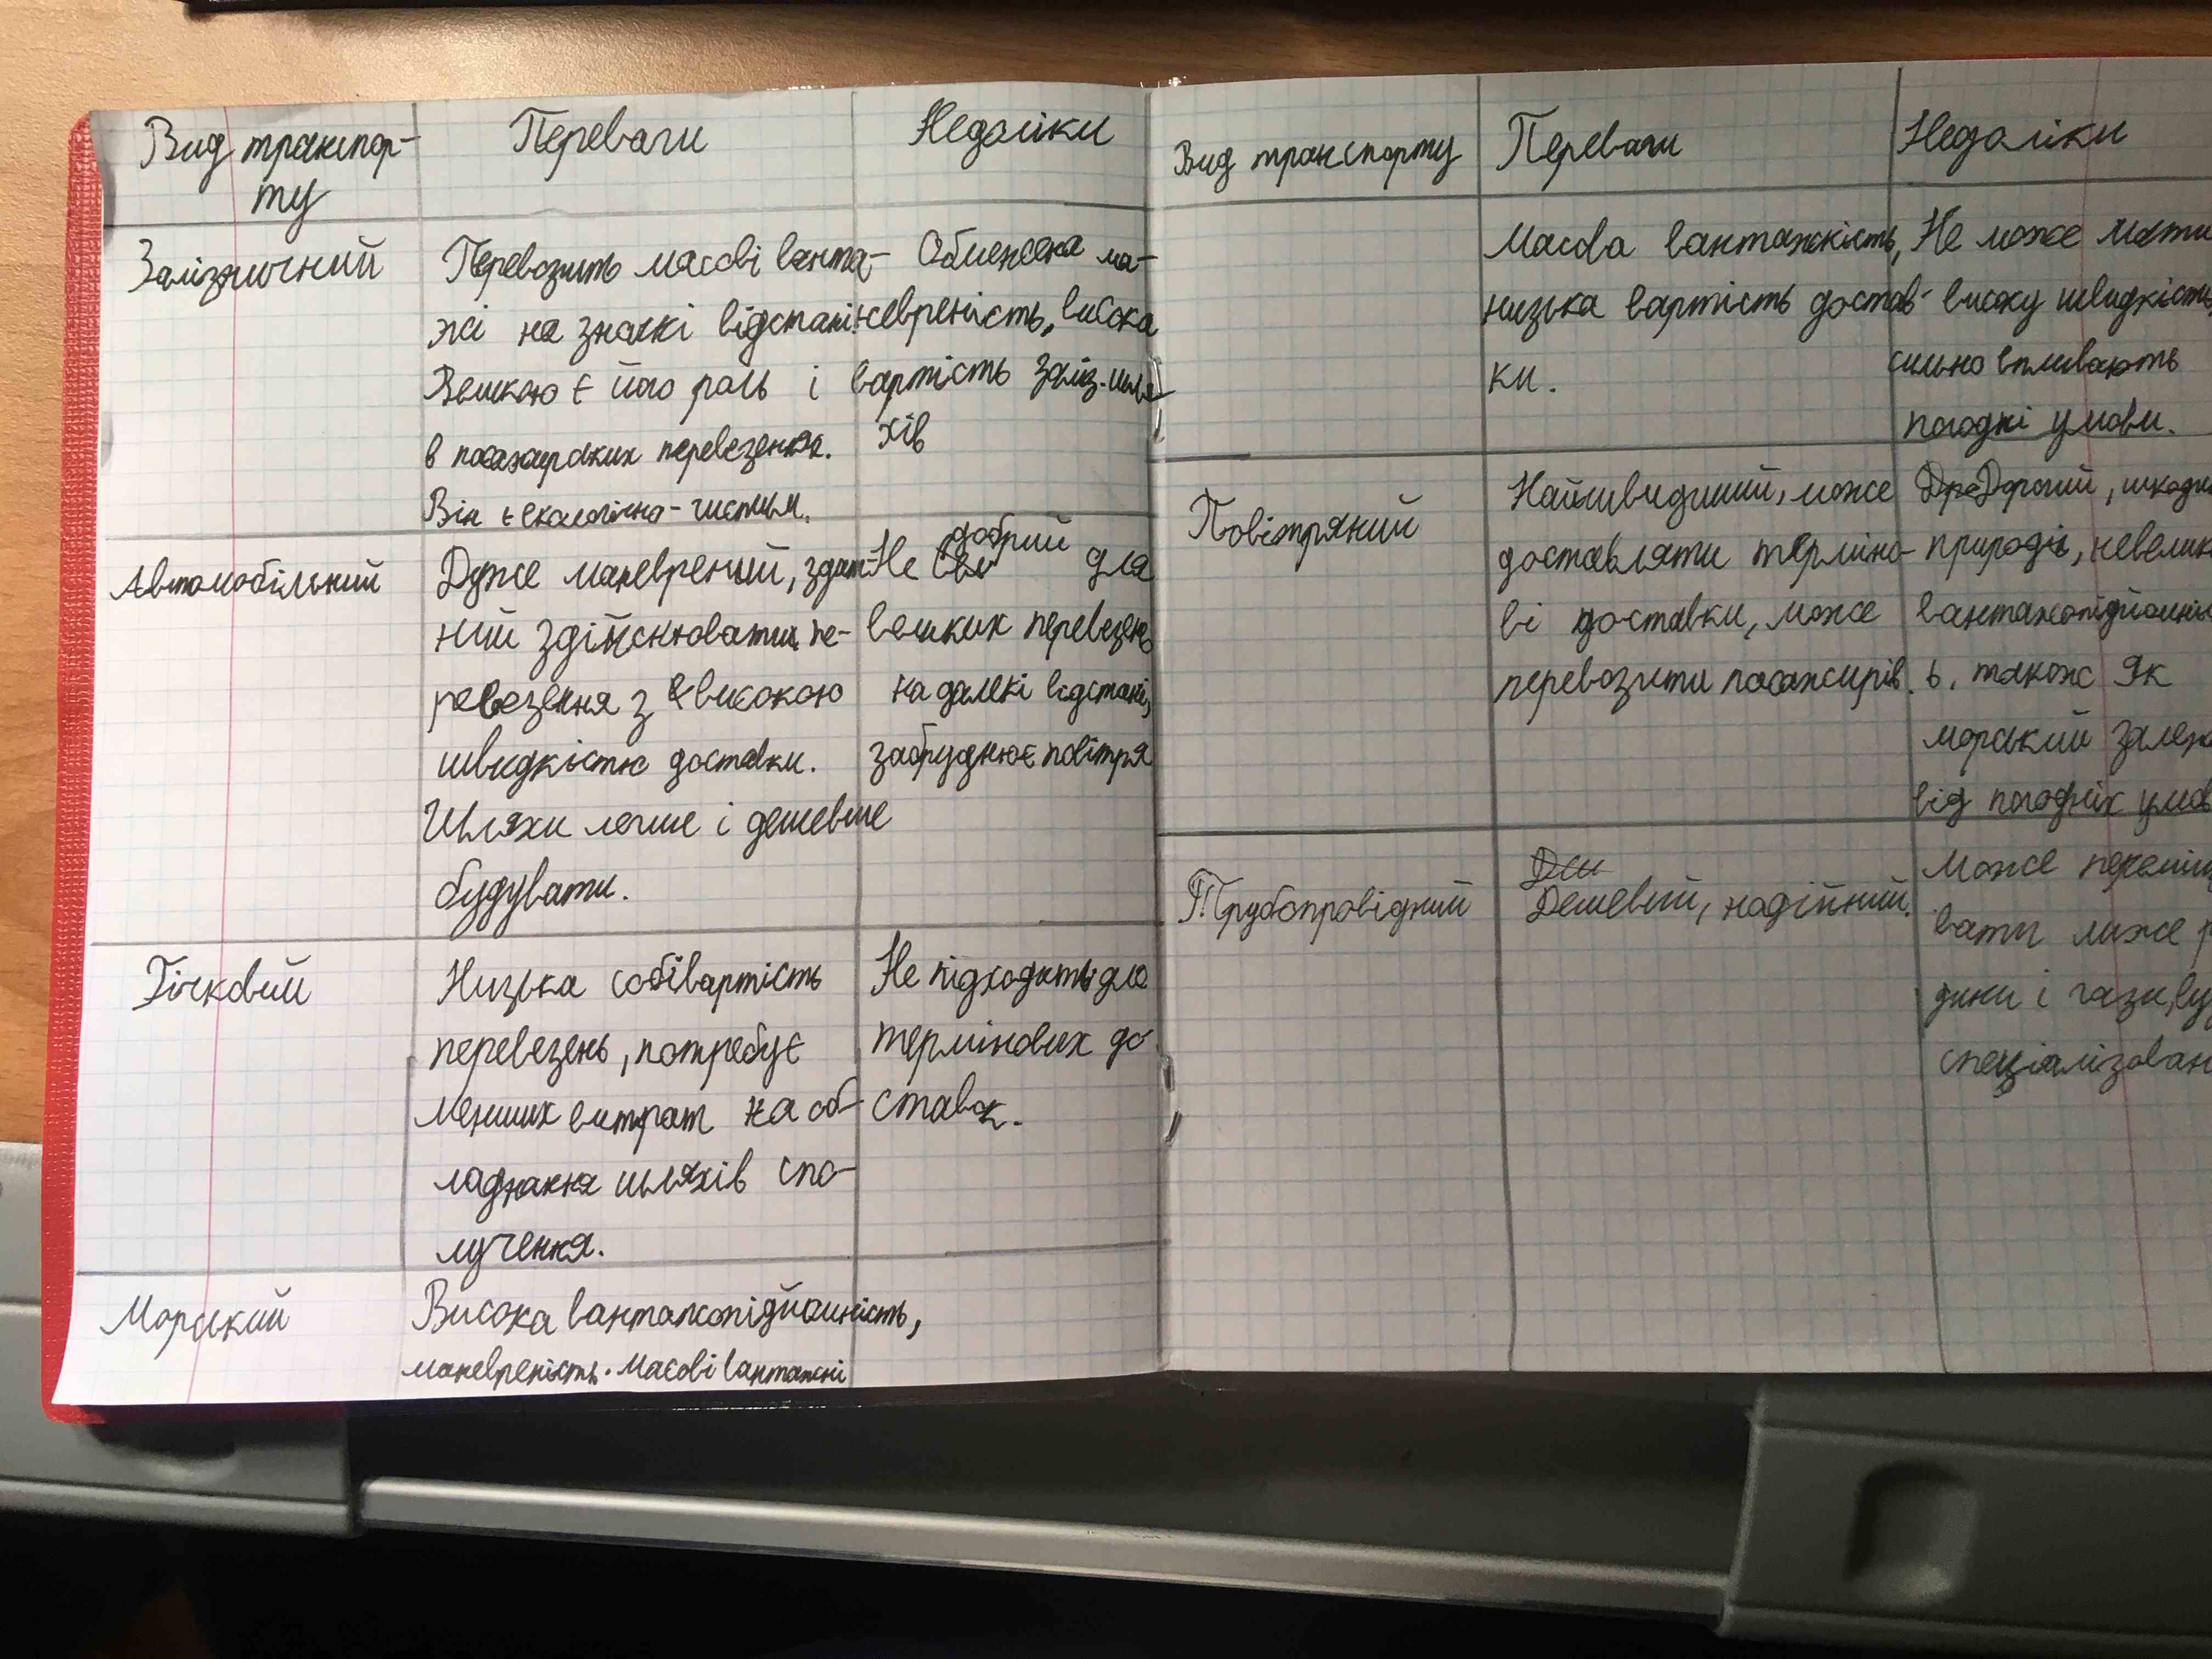 Вид транспор-
ту
Переваги
Недоліки
Залізничний
Перевозить масові ванта-
жі на значні відстані.
Великою є його роль і
в пасажирских перевезеннях.
Він є екологічно-чистим.
Обмежена ма-
невреність, висока
вартість заліз. шля-
хів
Автомобільний
Дуже маневрений, здат-
ний здійснювати пе-
ревезення з високою
швидкістю доставки.
Шляхи легше і дешевше
будувати.
Не добрий для
великих перевезень
на далекі відстані,
забруднює повітря
Річковий
Низька собівартість
перевезень, потребує
менших витрат на об-
ладнання шляхів спо-
лучення.
Не підходить для
термінових до-
ставок.
Морський
Висока вантажопідйомність,
маневреність. Масові вантажні
Вид транспорту
Переваги
Недоліки
Масова вантажність,
низька вартість достав-
ки.
Не може мати
високу швидкість,
сильно впливають
погодні умови.
Повітряний
Найшвидший, може
доставляти терміно-
ві доставки, може
перевозити пасажирів.
Дорогий, шкоди
природі, невелик
вантажопідйомніс
ь, також як
морський залеж
від погодніх умов
Трубопровідний
Дешевий, надійний.
Може переміщ
вати лише р
дини і гази, ву
спеціалізован